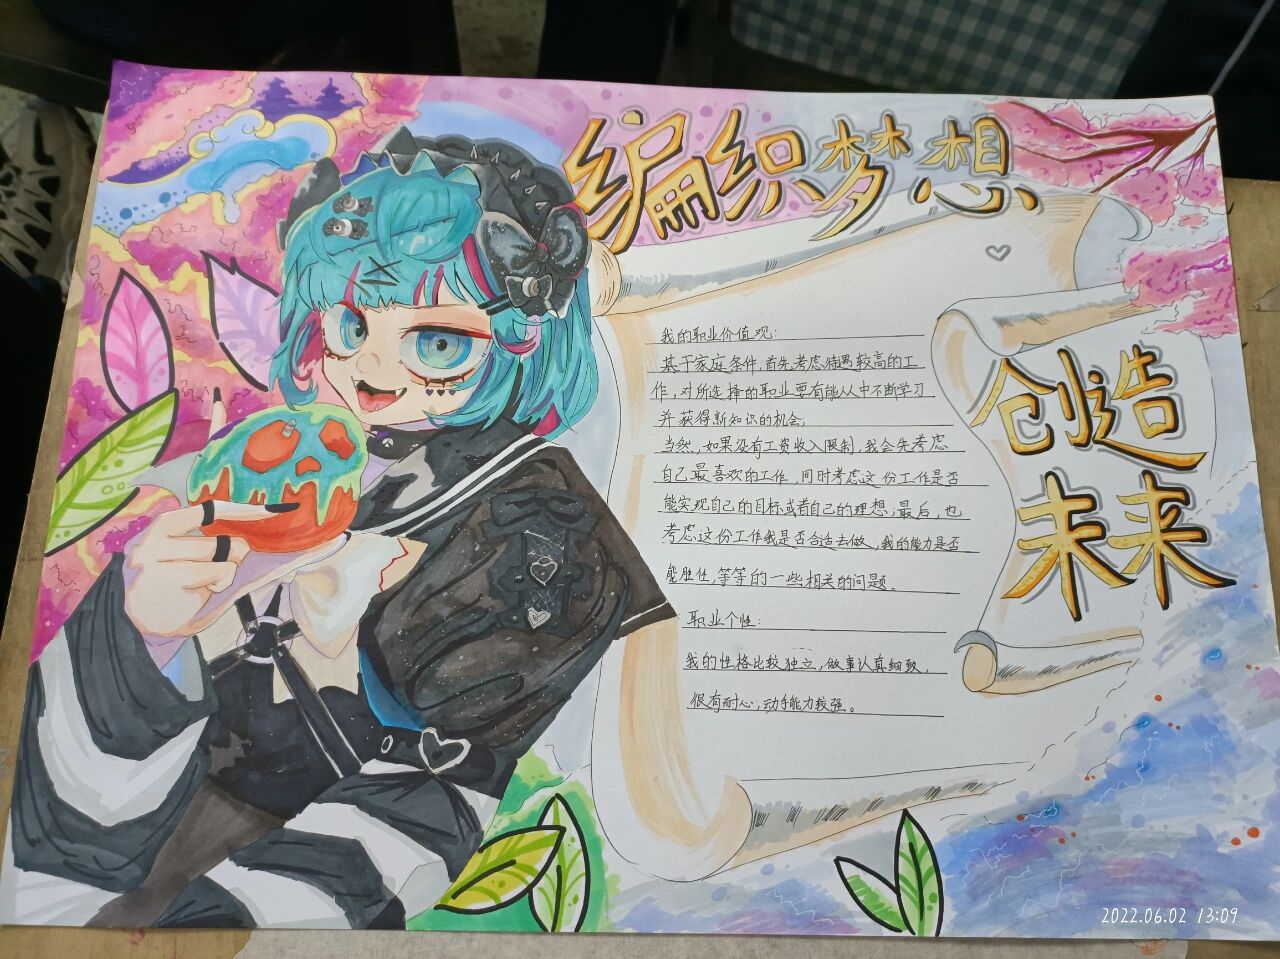 编织梦想
创造
未来
我的职业价值观:
基于家庭条件,首先考虑待遇较高的工
作,对所选择的职业要有能从中不断学习
并获得新知识的机会;
当然,如果没有工资收入限制,我会先考虑
自己最喜欢的工作,同时考虑这份工作是否
能实现自己的目标或者自己的理想;最后,也
考虑这份工作我是否合适去做,我的能力是否
能胜任,等等的一些相关的问题。
职业个性:
我的性格比较独立,做事认真细致,
很有耐心,动手能力较强。
2022.06.02 13:09